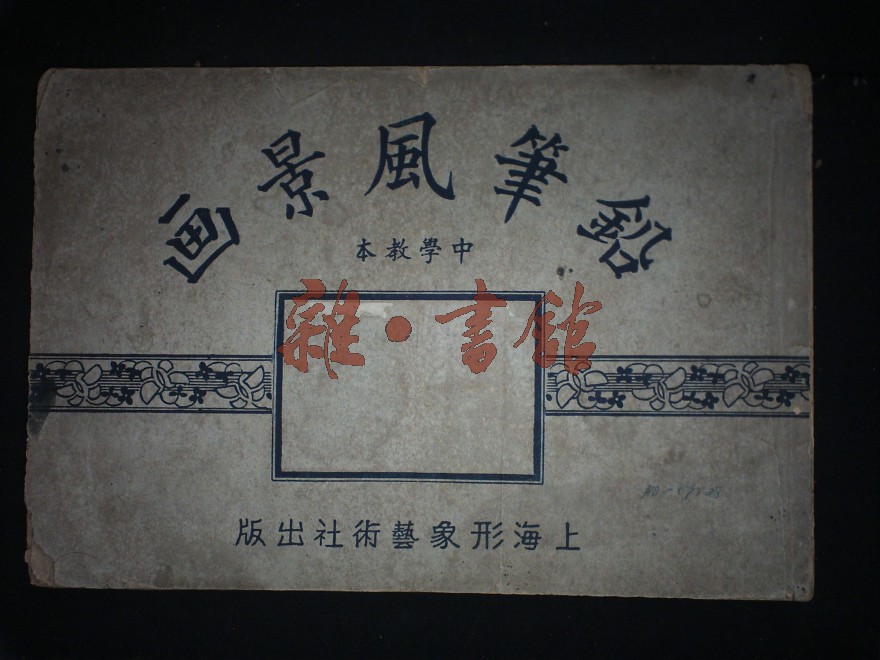 鉛筆風景画
中學教本
雜·書館
上海形象藝術社出版